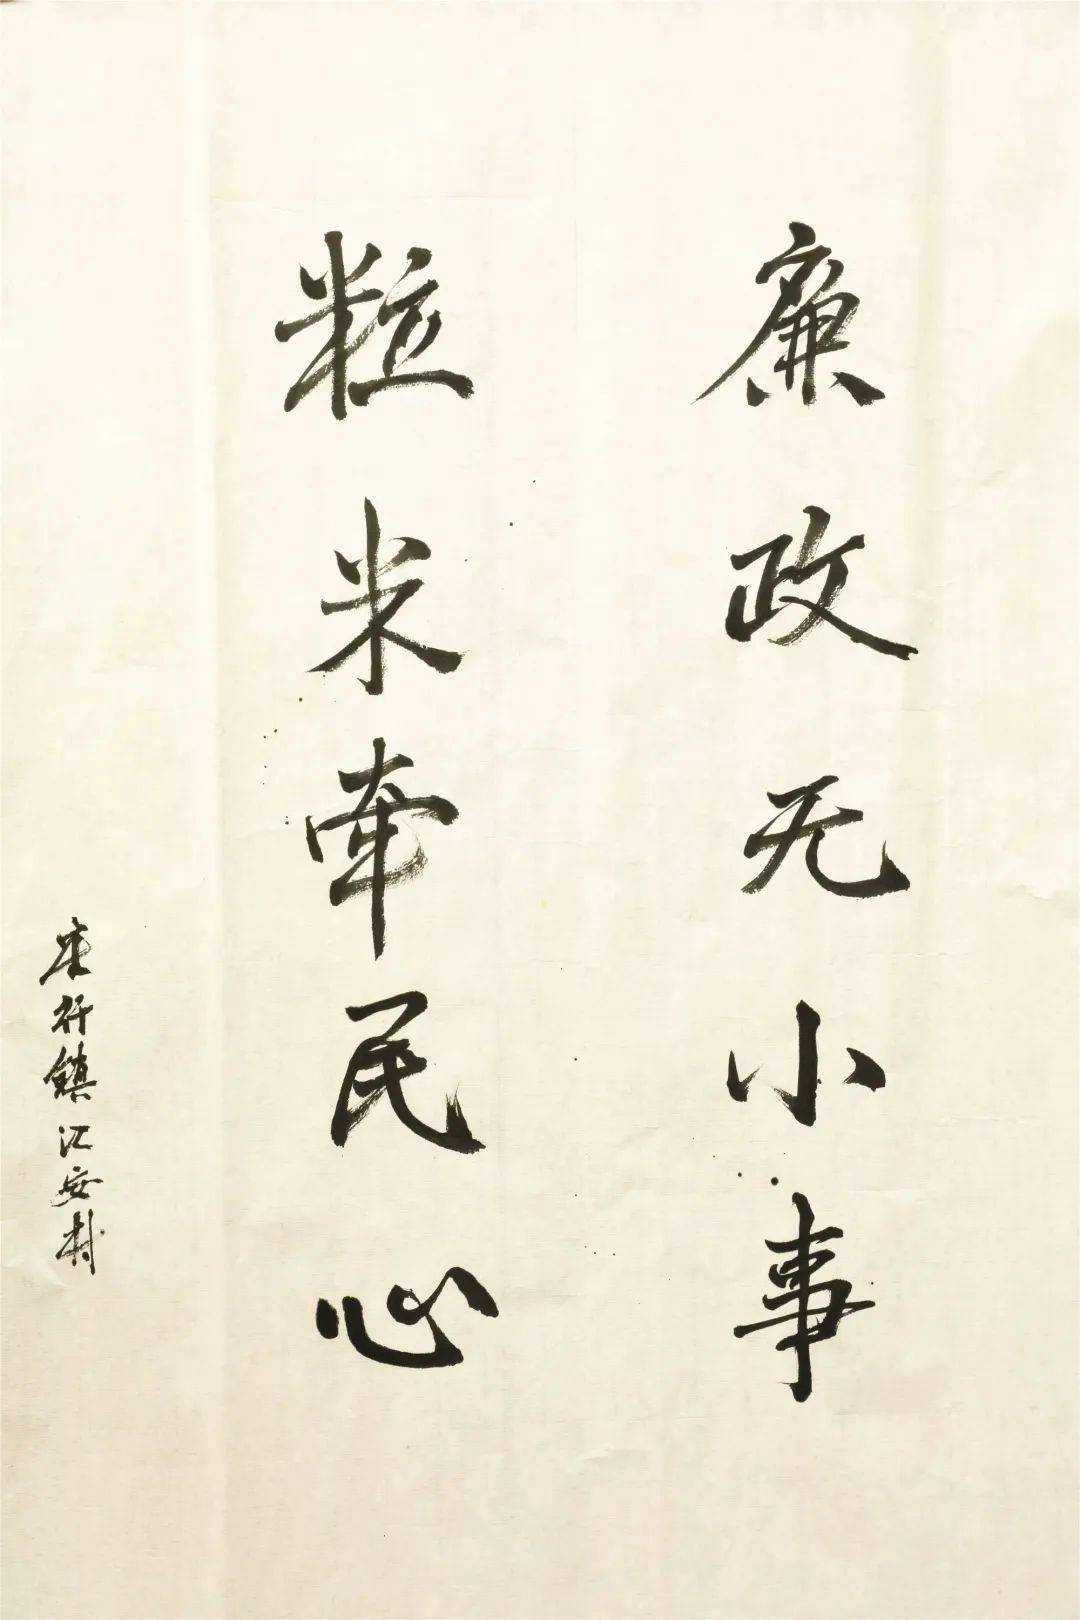 廉政无小事
粒米牵民心
朱行镇江安村